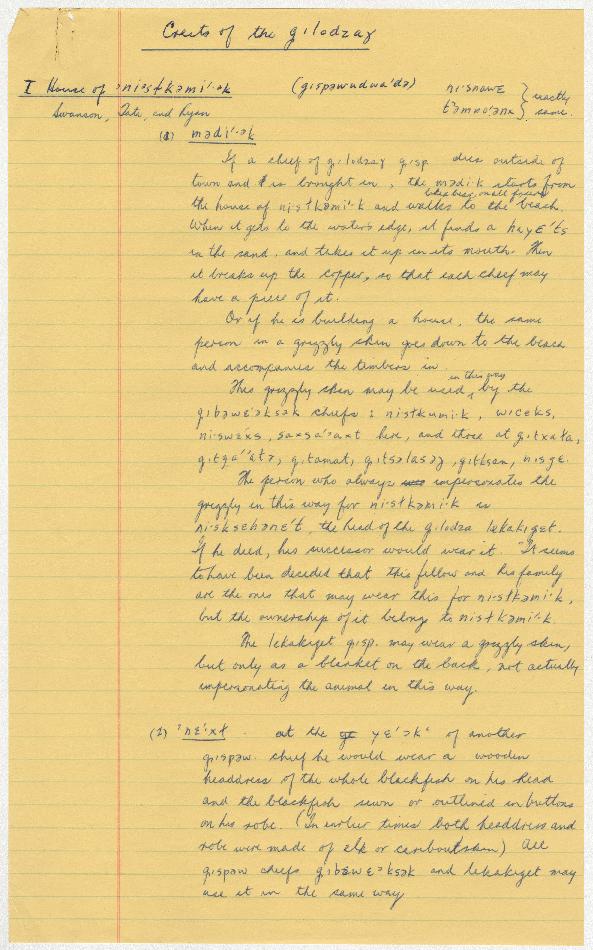 Crests of the gilodzaɣ
I House of ʼni·ɘstkəmi'·ək (gispəwudwa'də) ni'snawɛ } exactly
Swanson, Tate, and Ryan same.
(1) mədi'·ək
If a chief of gilodzaɣ gisp dies outside of
town and is brought in, the mədi·k starts from
like bear, on all fours
the house of nistkəmi'·k and walks to the beach.
When it gets to the water's edge, it finds a hayɛ'ts
in the sand, and takes it up in its mouth. Then
it breaks up the copper, so that each chief may
have a piece of it.
Or if he is building a house, the same
person in a grizzly skin goes down to the beach
and accompanies the timbers in.
in this way
This grizzly skin may be used, by the
chiefs : nistkumi·k, wiceks,
niswɛxs, saxsa'ɘaxt here, and those at gitxała,
gitga''atə, gitamat, gitsəlasəɣ, gitksan, nisgɛ.
The person who always impersonates the
grizzly in this way for ni·stkəmi·k is
ni·sksehənɛ't, the head of the gilodza lɛkakigɛt.
If he died, his successor would wear it. It seems
to have been decided that this fellow and his family
are the ones that may wear this for ni·stkəmi·k,
but the ownership of it belong to nistkəmi'·k.
The lɛkakigɛt gisp. may wear a grizzly skin,
but only as a blanket on the back, not actually
impersonating the animal in this way.
(2) 'nɛ'·xł at the yɛ'·ək of another
gispəw. chief he would wear a wooden
headdress of the whole blackfish on his head
and the blackfish sewn or outlined in buttons
on his robe. (In earlier times both headdress and
robe were made of elk or caribou skin) All
gispəw chiefs gibəwɛ'əksək and lɛkakigɛt may
use it in the same way